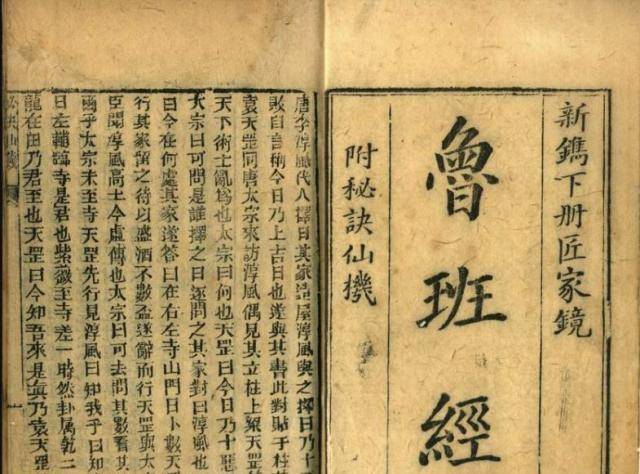 新鐫下册匠家鏡
魯班經
附秘訣仙機
唐李淳風代人擇日其家造屋淳風與之擇日乃十
敗日自稱今日乃上吉日也遂與其書此對貼于柱
袁天罡同唐太宗來訪淳風偶見其立柱上梁天罡
天下術士亂爲也太宗曰何也天罡曰今日乃十惡
太宗曰可問是誰擇之日逐問之其家對曰淳風也
曰今在何處其家遂答曰在右左寺山門日卜數天
行其家留之待以盛酒不數盃遂辭而行天罡與太
臣聞淳風高士今虛傳也太宗曰可去問其數看其
乎太宗未至寺天罡先行見淳風曰知我乎曰知
日左輔臨寺是君也紫薇至寺差一時然卦屬乾二
龍在田乃君至也天罡曰今知吾來是眞乃袁天罡